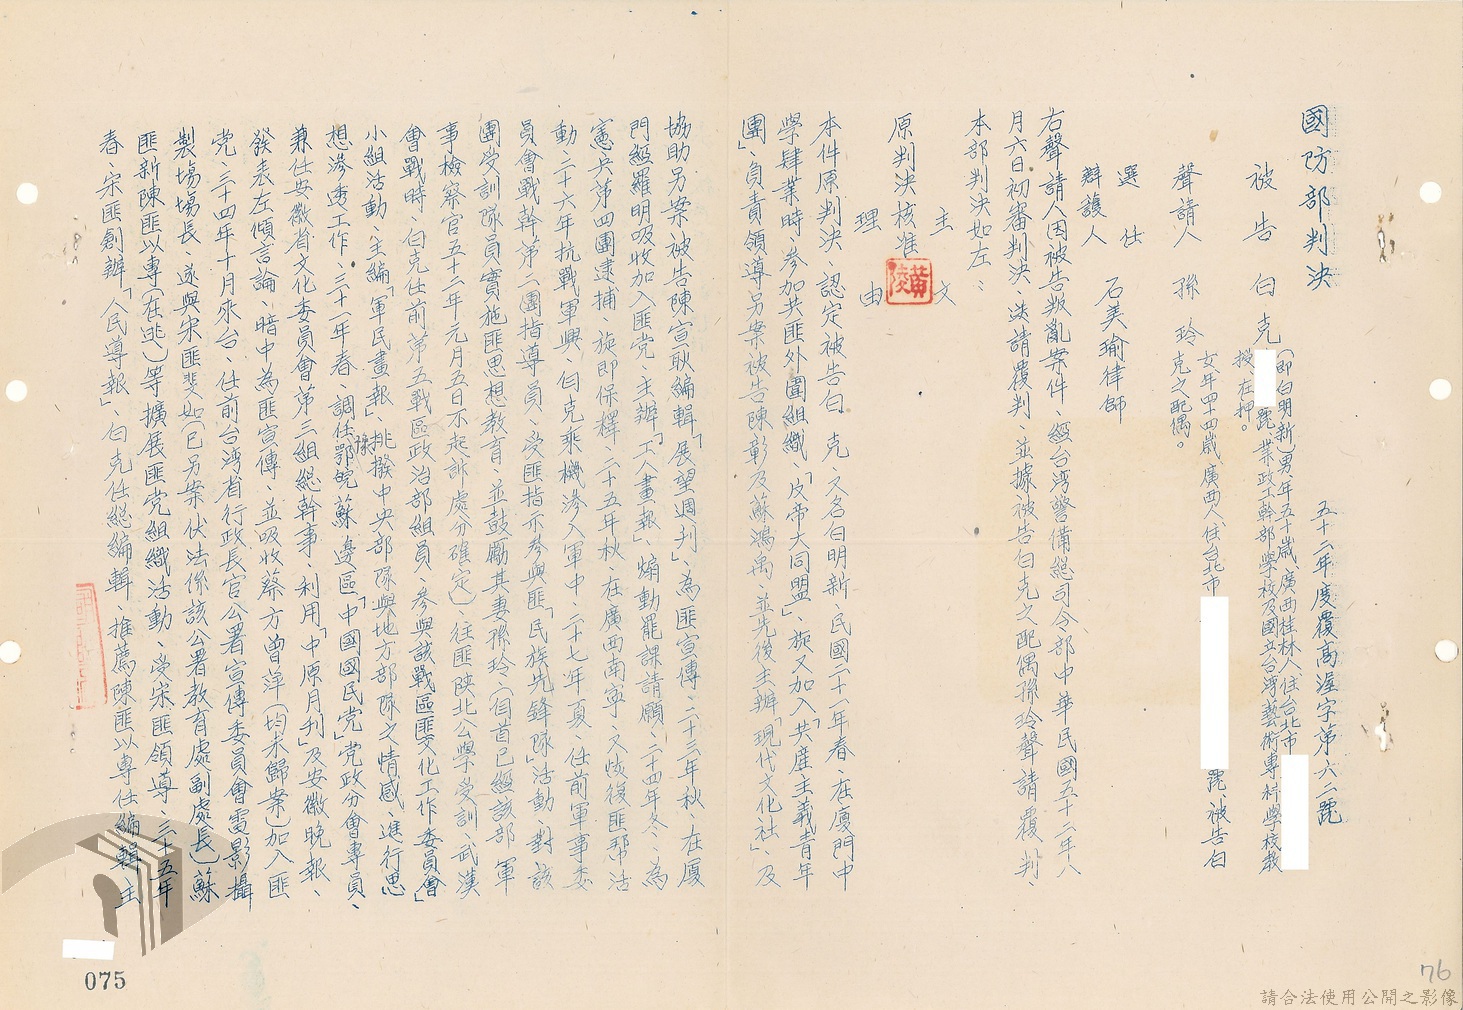 國防部判決
五十二年度覆高渥字第六二號
被告 白克 (即白明新)男、年五十歲、廣西桂林人、住台北市
號、業政工幹部學校及國立台灣藝術專科學校教
授、在押。
聲請人 孫玲 女、年四十四歲、廣西人、住台北市 號、被告白
克之配偶。
選任
辯護人 石美瑜律師
右聲請人因被告叛亂案件、經台灣警備總司令部中華民國五十二年八
月六日初審判決、送請覆判、並據被告白克之配偶孫玲聲請覆判、
本部判決如左:
主文
原判決核准
理由
本件原判決、認定被告白克、又名白明新、民國二十一年春、在廈門中
學肄業時、參加共匪外圍組織、「反帝大同盟」、旋又加入「共產主義青年
團」、負責領導另案被告陳彰及蘇鴻禹、並先後主辦「現代文化社」、及
協助另案被告陳宣耿編輯「展望週刊」、為匪宣傳、二十三年秋、在廈
門經羅明吸收加入匪党、主辦「工人畫報」、煽動罷課請願、二十四年冬、為
憲兵第四團逮捕、旋即保釋、二十五年秋、在廣西南寧、又恢復匪幫活
動、二十六年抗戰軍興、白克乘機滲入軍中、二十七年夏、任前軍事委
員會戰幹第二團指導員、受匪指示參與匪「民族先鋒隊」活動、對該
團受訓隊員實施匪思想教育、並鼓勵其妻孫玲(自首已經該部軍
事檢察官五十二年元月五日不起訴處分確定)、往匪陝北公學受訓、武漢
會戰時、白克任前第五戰區政治部組員、參與該戰區匪「文化工作委員會」
小組活動、主編「軍民畫報」、挑撥中央部隊與地方部隊之情感、進行思
想滲透工作、三十一年春、調任鄂豫皖蘇邊區「中國國民党」党政分會專員、
兼任安徽省文化委員會第三組總幹事、利用「中原月刊」及安徽晚報、
發表左傾言論、暗中為匪宣傳、並吸收蔡方曾萍(均未歸案)加入匪
党、三十四年十月來台、任前台灣省行政長官公署宣傳委員會電影攝
製場場長、遂與宋匪斐如(已另案伏法係該公署教育處副處長)蘇
匪新陳匪以專(在逃)等擴展匪党組織活動、受宋匪領導、三十五年
春、宋匪創辦「人民導報」、白克任總編輯、推薦陳匪以專任編輯主
黃陵
075
76
請合法使用公開之影像